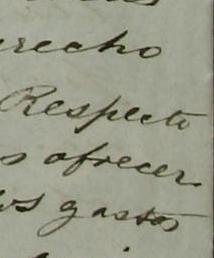 recho
Respecto
s ofrecer
os gastos